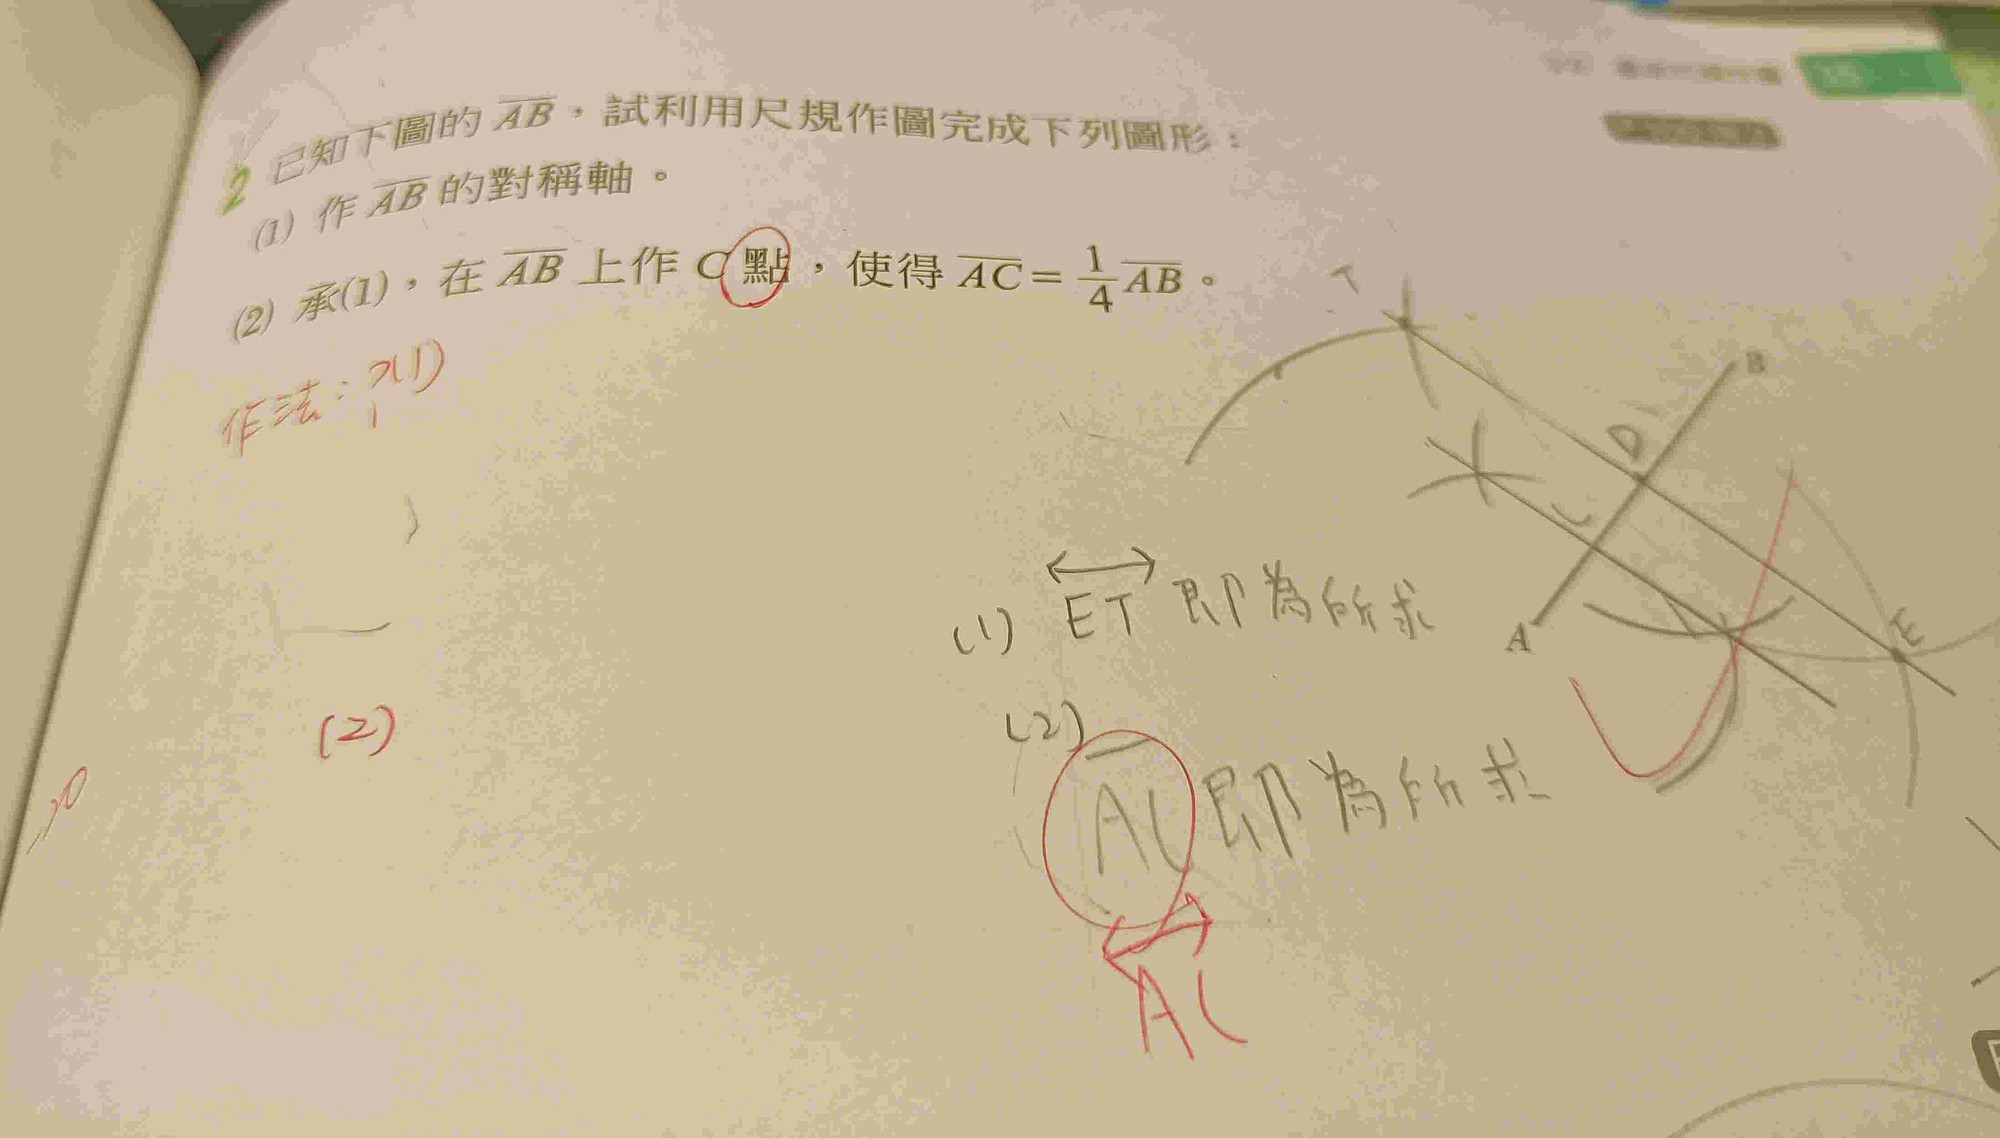 2 已知下圖的 AB，試利用尺規作圖完成下列圖形：
(1) 作 AB 的對稱軸。
(2) 承(1)，在 AB 上作 C 點，使得 AC = 1/4 AB。
作法：
(1)
T
B
D
C
A
E
(1) ET 即為所求
(2)
(2) AC 即為所求
AC